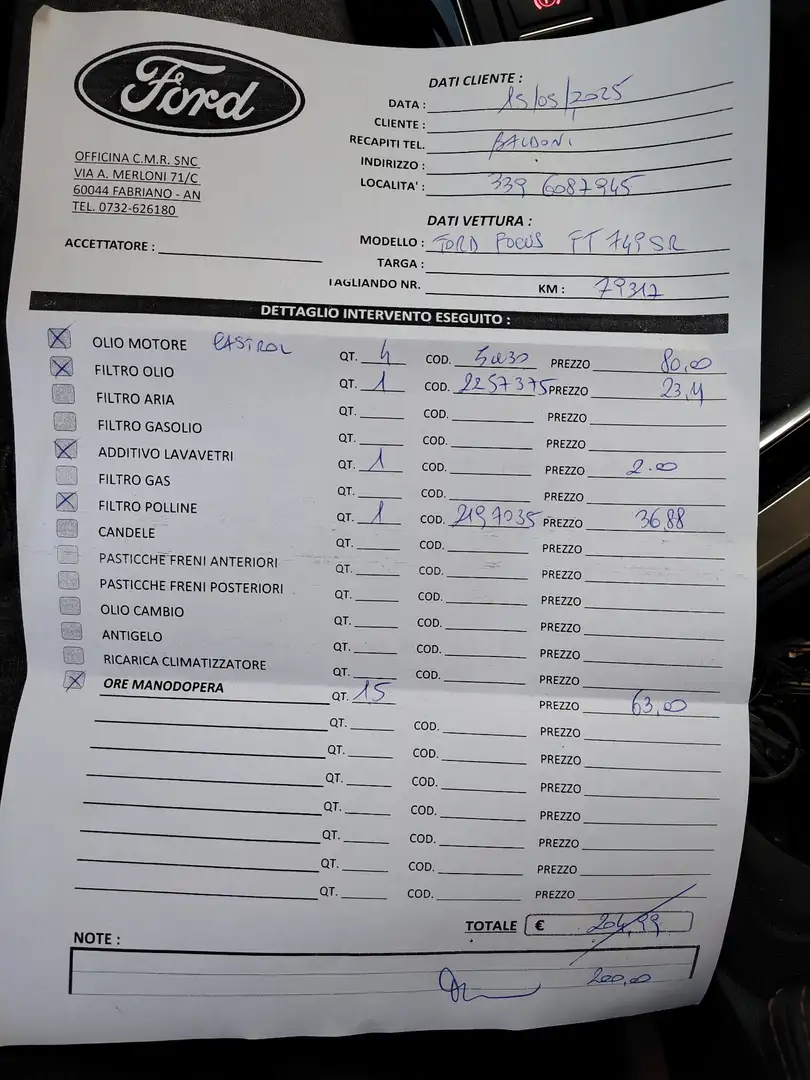 Ford
OFFICINA C.M.R. SNC
VIA A. MERLONI 71/C
60044 FABRIANO - AN
TEL. 0732-626180
ACCETTATORE :
DATI CLIENTE :
DATA : 15/05/2025
CLIENTE :
RECAPITI TEL. BALDONI
INDIRIZZO :
LOCALITA' : 339 6087945
DATI VETTURA :
MODELLO : FORD FOCUS FT 749SR
TARGA :
TAGLIANDO NR. KM : 79317
DETTAGLIO INTERVENTO ESEGUITO :
OLIO MOTORE CASTROL QT. 4 COD. 5W30 PREZZO 80,00
FILTRO OLIO QT. 1 COD. 2257375 PREZZO 23,11
FILTRO ARIA QT. COD. PREZZO
FILTRO GASOLIO QT. COD. PREZZO
ADDITIVO LAVAVETRI QT. 1 COD. PREZZO 2.00
FILTRO GAS QT. COD. PREZZO
FILTRO POLLINE QT. 1 COD. 2197035 PREZZO 36,88
CANDELE QT. COD. PREZZO
PASTICCHE FRENI ANTERIORI QT. COD. PREZZO
PASTICCHE FRENI POSTERIORI QT. COD. PREZZO
OLIO CAMBIO QT. COD. PREZZO
ANTIGELO QT. COD. PREZZO
RICARICA CLIMATIZZATORE QT. COD. PREZZO
ORE MANODOPERA QT. 1,5 PREZZO 63,00
QT. COD. PREZZO
QT. COD. PREZZO
QT. COD. PREZZO
QT. COD. PREZZO
QT. COD. PREZZO
QT. COD. PREZZO
QT. COD. PREZZO
TOTALE € 204,99
NOTE :
200,00